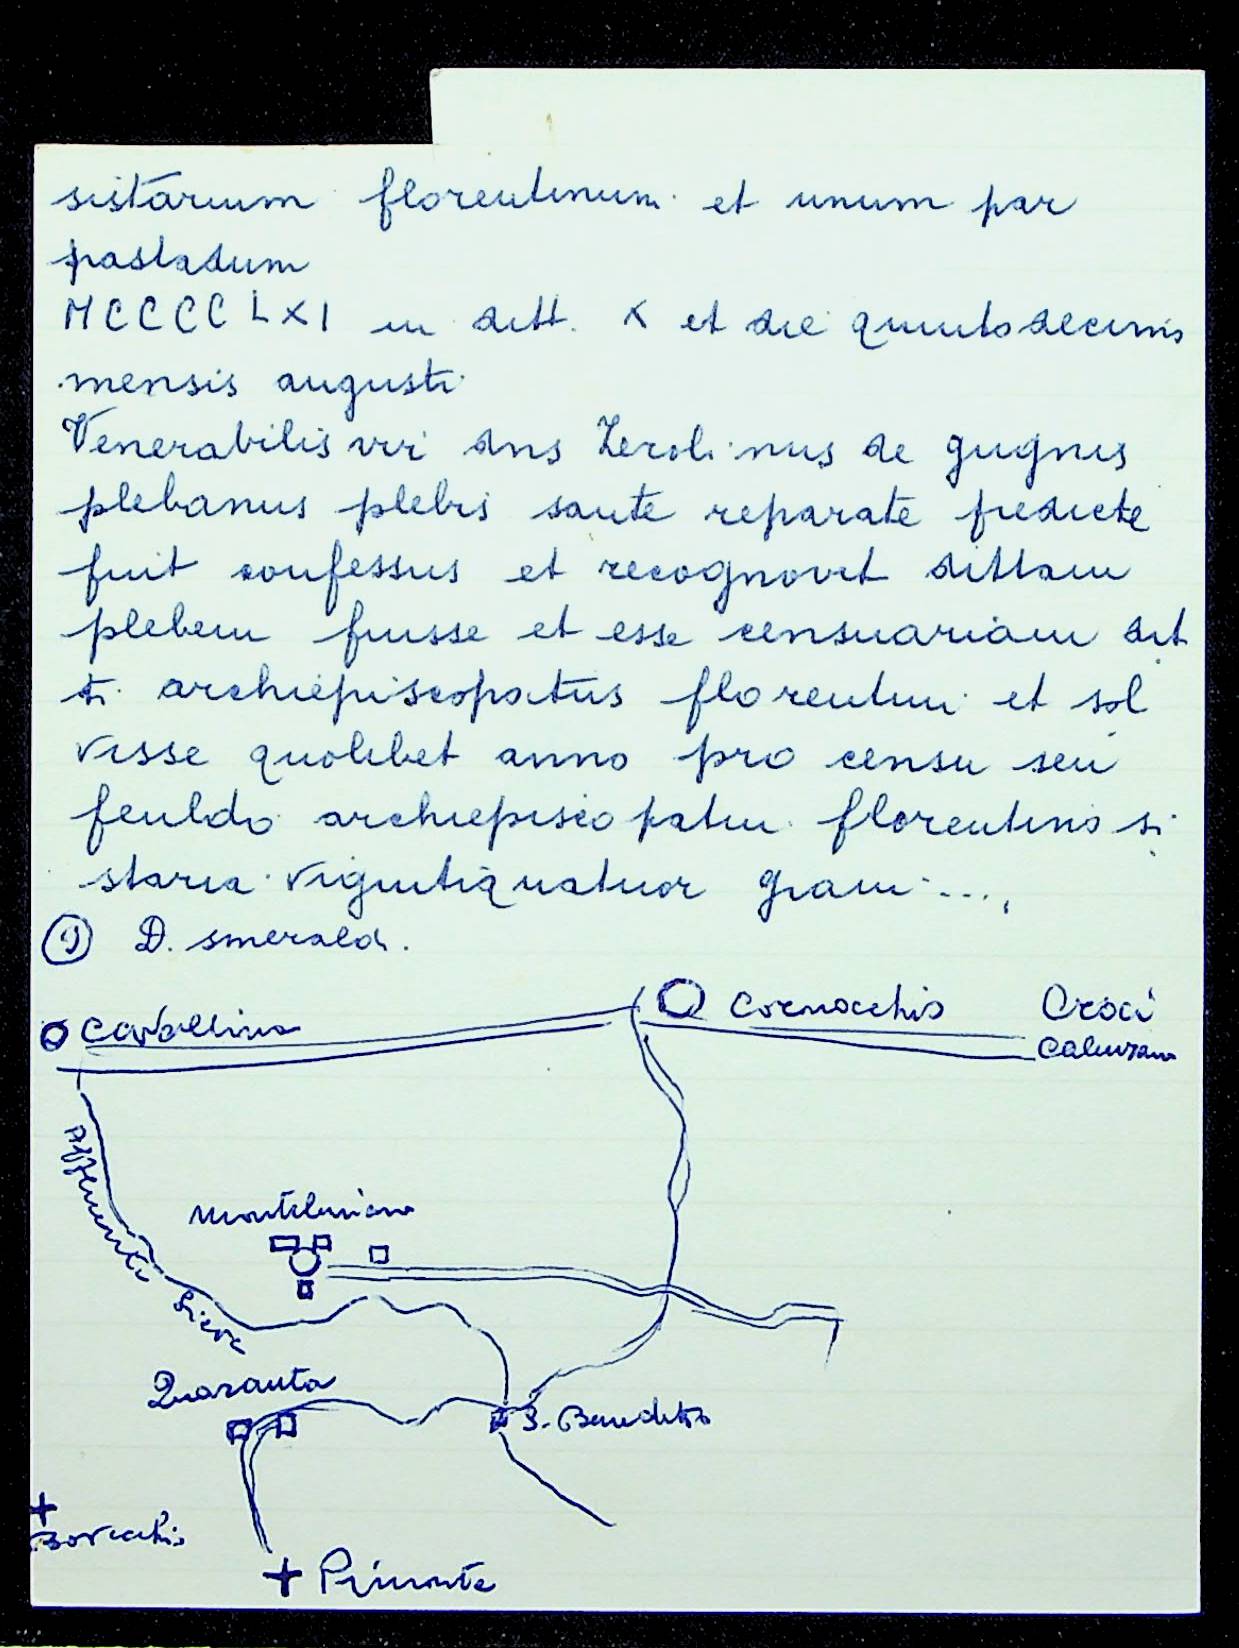 sistarium florentinum et unum par
pastadum
MCCCCLXI in ditt. X et die quintodecimo
mensis augusti
Venerabilis vir dns Zerolinus de gugnis
plebanus plebis sante reparate predicte
fuit confessus et recognovit dittam
plebem fuisse et esse censuariam dit
ti archiepiscopatus florentini et sol
visse quolibet anno pro censu seu
feuldo archiepiscopatui florentino si
staria vigintiquatuor grani ....
9 D. smeraldi.
Cavallina
Cornocchio
Croci
Calenzano
Affluente Sieve
Montebuiano
Quaranta
S. Benedetto
Bovecchio
Pimonte